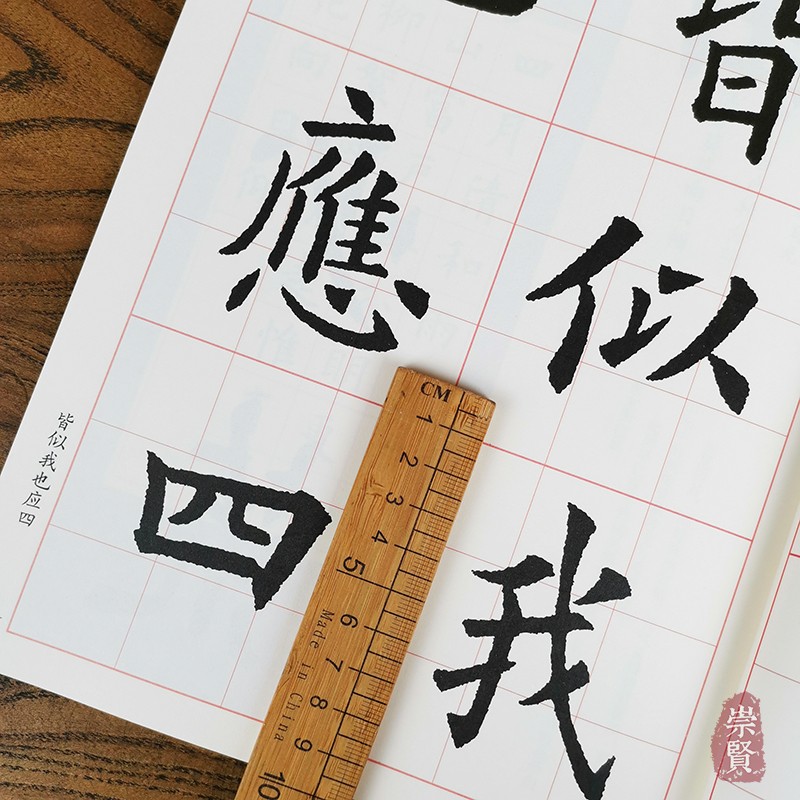 皆似我
應四
皆似我也应四
CM
1 2 3 4 5 6 7 8 9 10
Made in China
崇賢